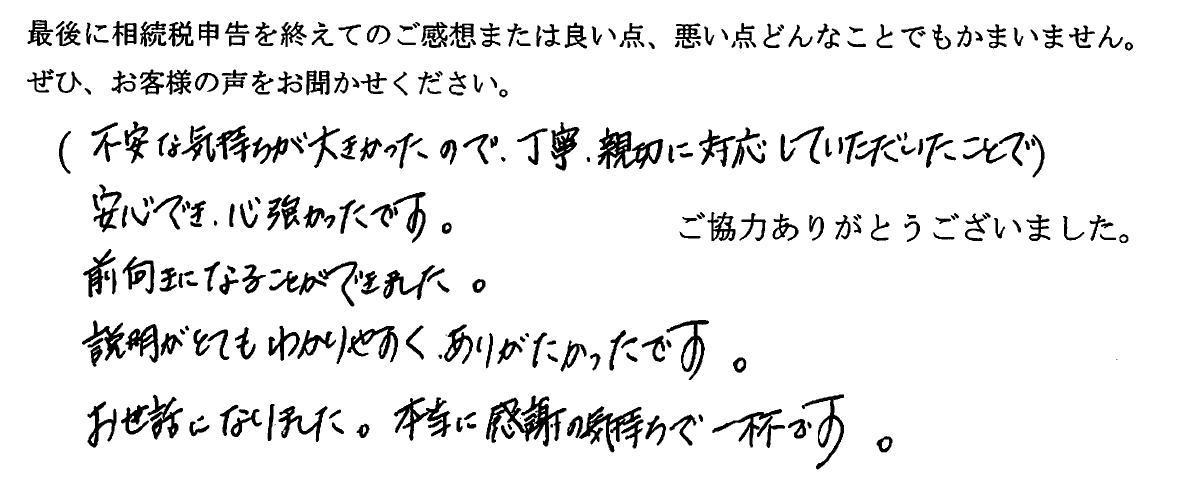 最後に相続税申告を終えてのご感想または良い点、悪い点どんなことでもかまいません。
ぜひ、お客様の声をお聞かせください。
(不安な気持ちが大きかったので、丁寧、親切に対応していただいたことで)
安心でき、心強かったです。
ご協力ありがとうございました。
前向きになることができました。
説明がとてもわかりやすく、ありがたかったです。
お世話になりました。本当に感謝の気持ちで一杯です。